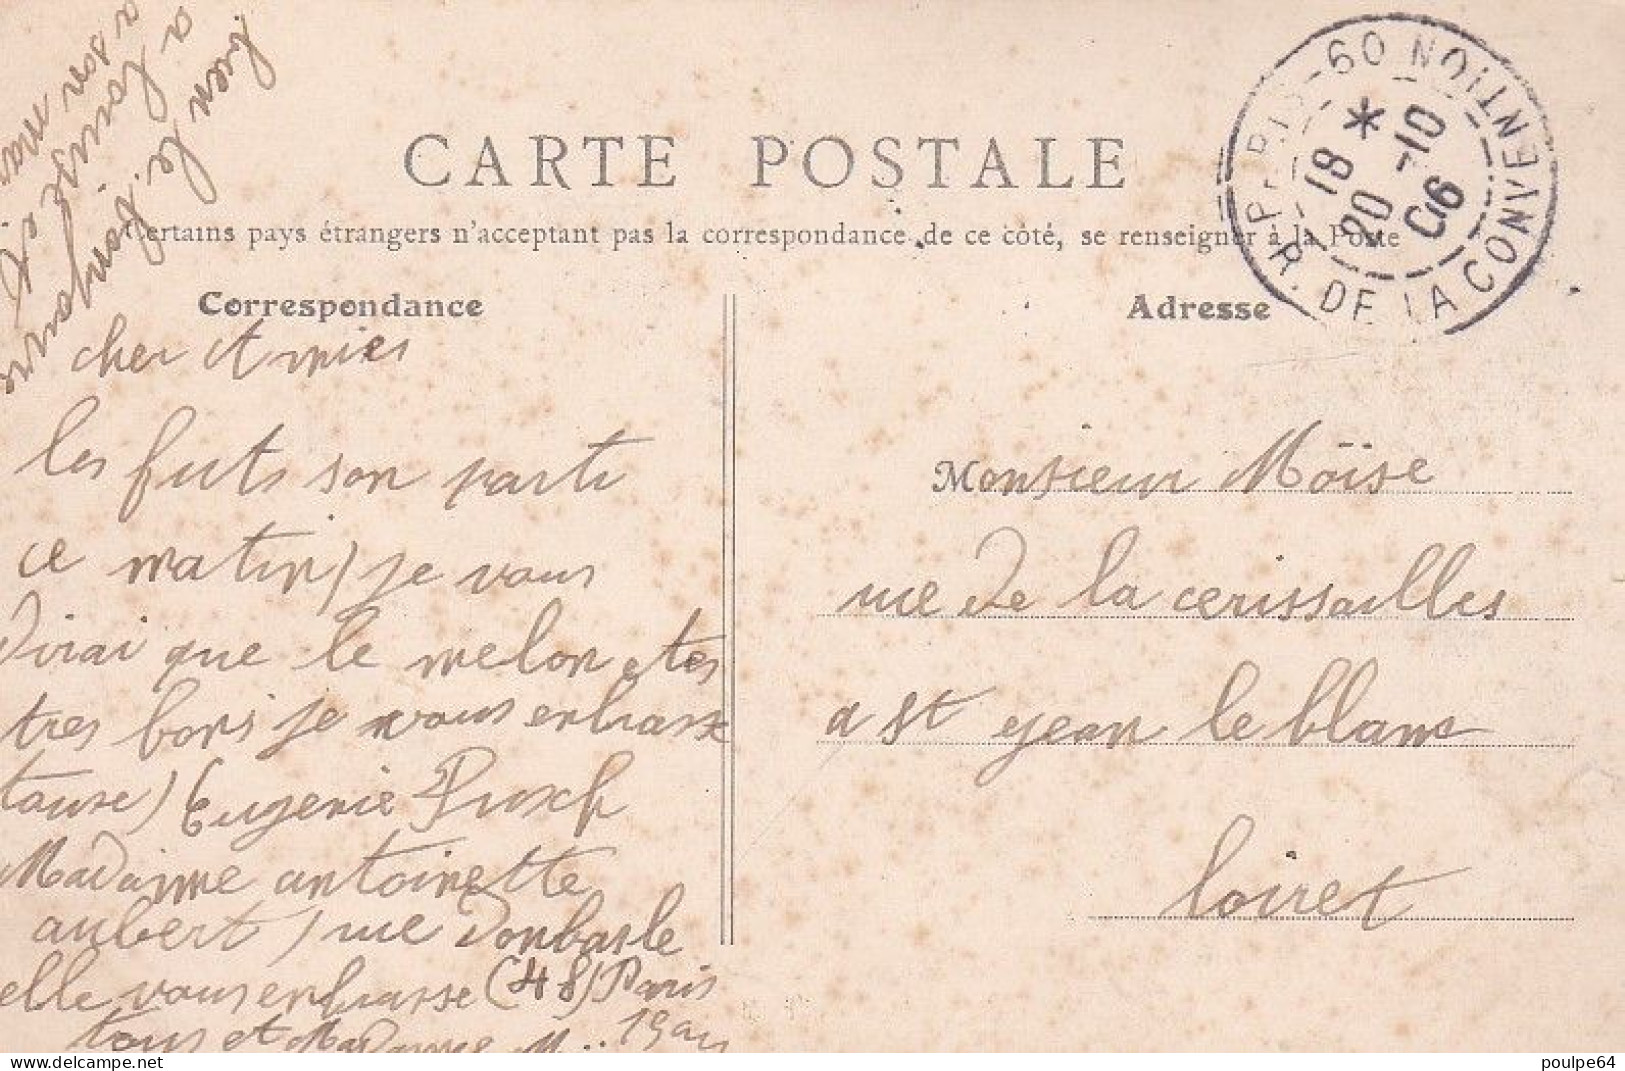 CARTE POSTALE
Certains pays étrangers n'acceptant pas la correspondance de ce côté, se renseigner à la Poste
PARIS-60 R. DE LA CONVENTION
18 *
20 -10
06
Correspondance
cher Amies
les futs son parti
ce matin) je vous
dirai que le melon etes
tres bons je vous enbrasse
touse) Eugenie
Madame antoinette
aubert / rue Donbasle
elle vous enbrasse (48) Paris
tous et Madame
bien le bonjour
a Louise et
a son mari
Adresse
Monsieur Moïse
rue de la cerissailles
a St jean le blanc
loiret
delcampe.net
poulpe64